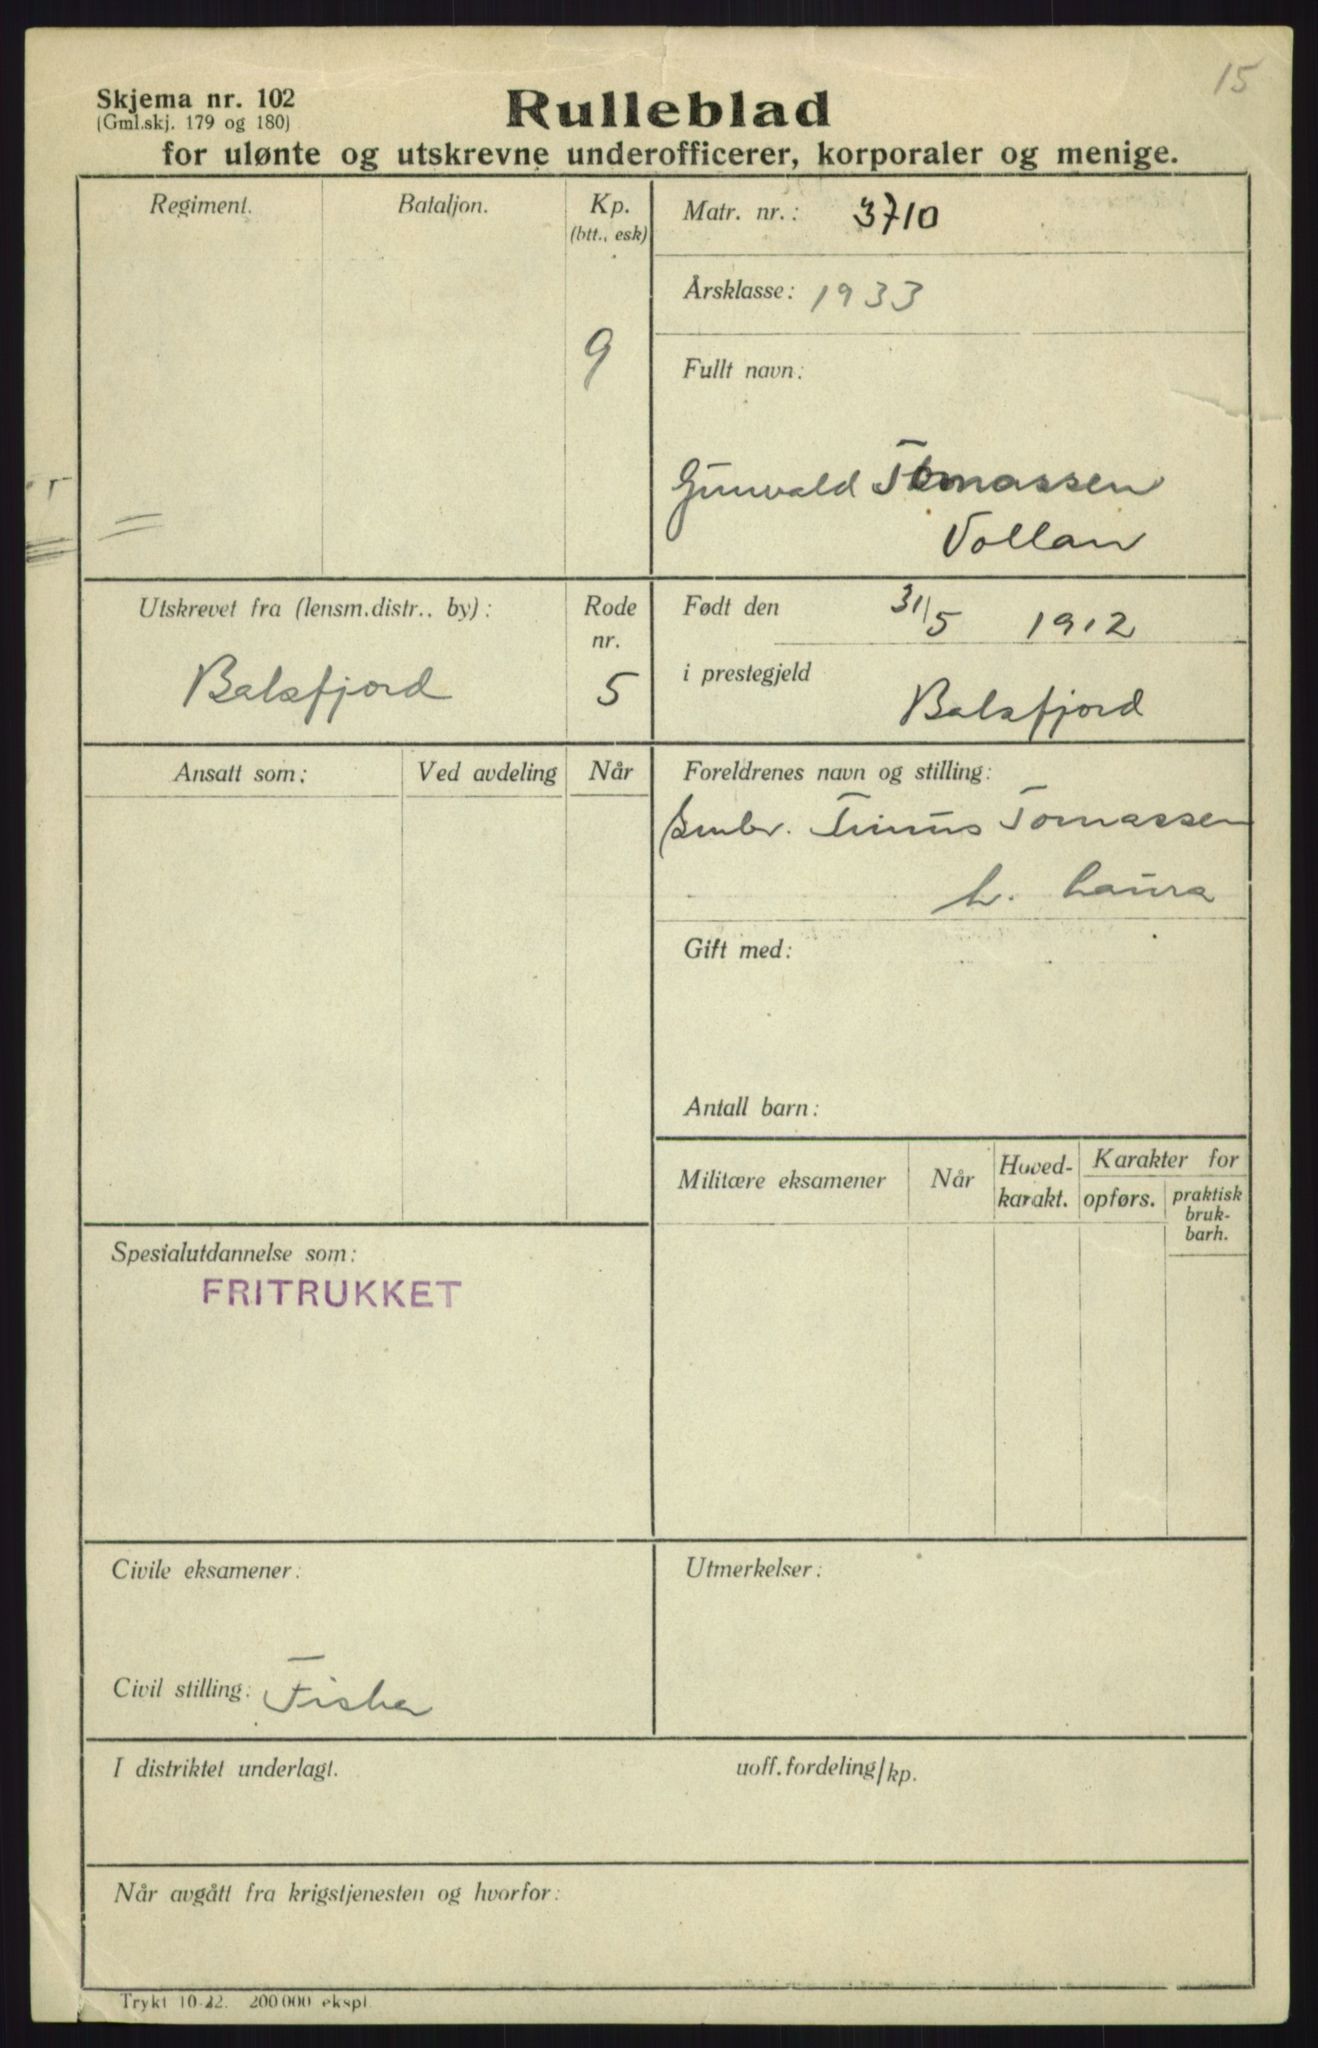 15
Skjema nr. 102
(Gml.skj. 179 og 180)
Rulleblad
for ulønte og utskrevne underofficerer, korporaler og menige.
Regiment.
Bataljon.
Kp.
(btt., esk)
9
Matr. nr.: 3710
Årsklasse: 1933
Fullt navn:
Gunvald Tomassen
Vollan
Utskrevet fra (lensm.distr.. by):
Balsfjord
Rode
nr.
5
Født den 31/5 1912
i prestegjeld
Balsfjord
Ansatt som:
Ved avdeling
Når
Foreldrenes navn og stilling:
Tomassen
h. Laura
Gift med:
Antall barn:
Militære eksamener
Når
Hoved-
karakt.
Karakter for
opførs.
praktisk
bruk-
barh.
Spesialutdannelse som:
FRITRUKKET
Civile eksamener:
Civil stilling: Fisker
Utmerkelser:
I distriktet underlagt.
uoff. fordeling/kp.
Når avgått fra krigstjenesten og hvorfor:
Trykt 10-22. 200 000 ekspl.